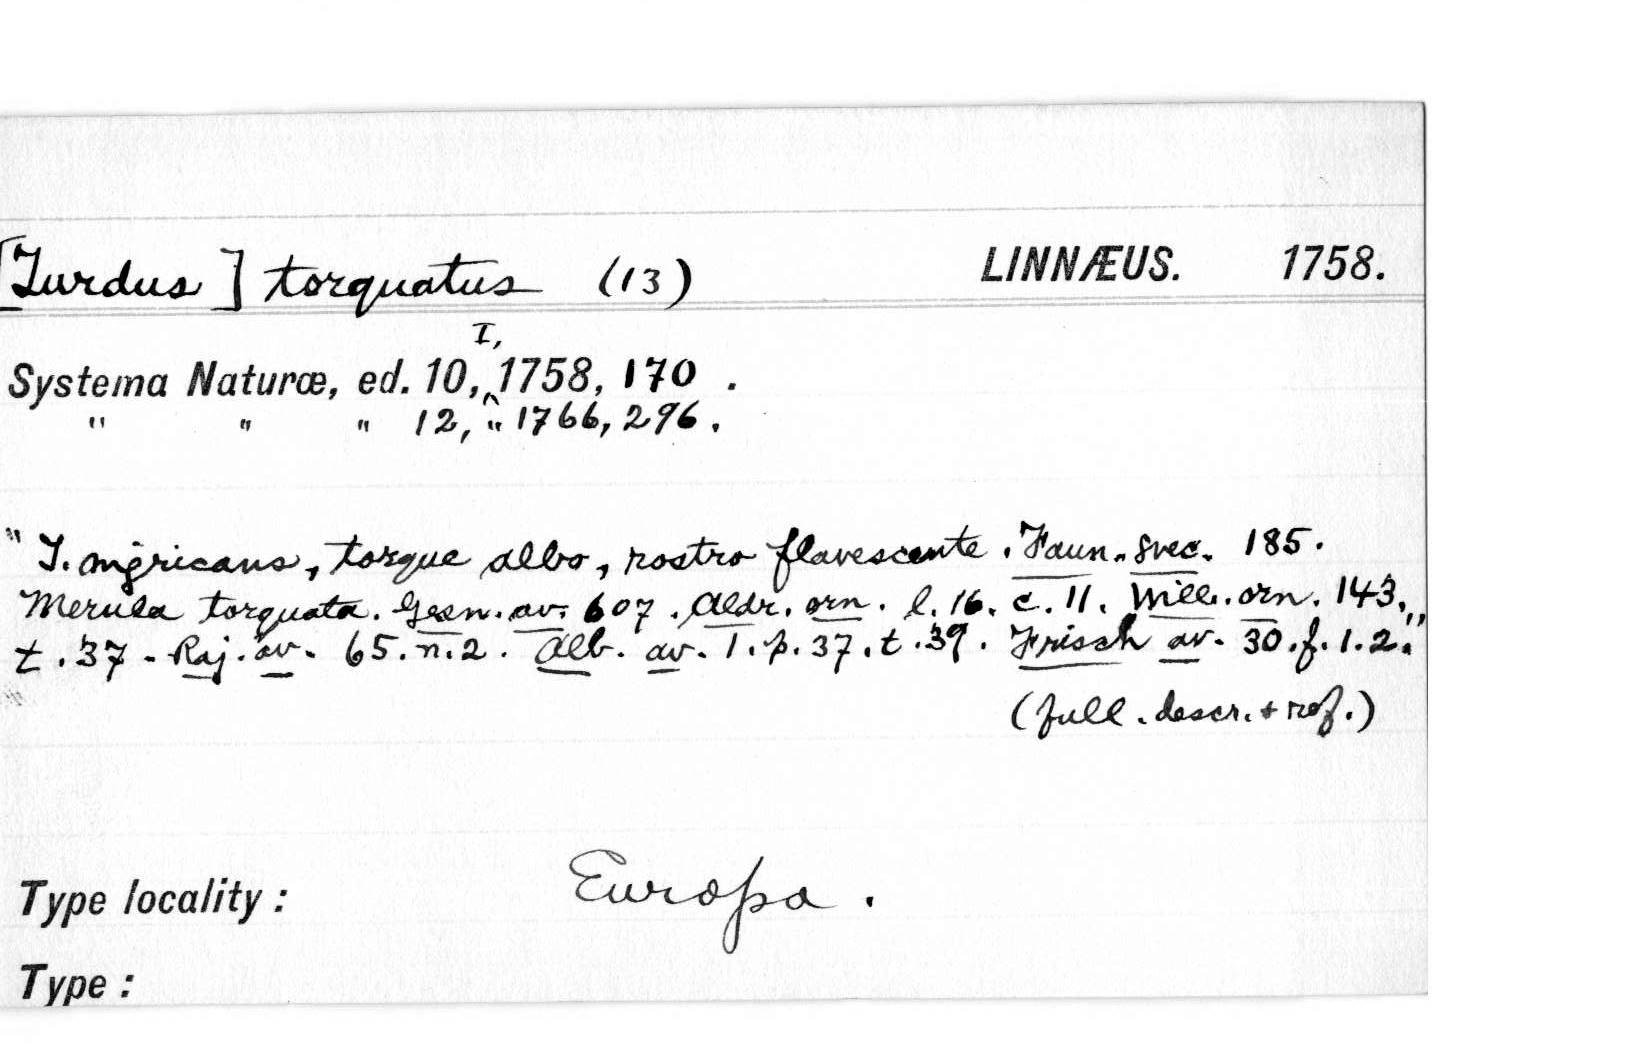 [Turdus] torquatus (13) LINNÆUS. 1758.
Systema Naturæ, ed. 10, I, 1758, 170.
" " " 12, " 1766, 296.
"T. nigricans, torque albo, rostro flavescente. Faun. svec. 185.
Merula torquata. Gesn. av. 607. Aldr. orn. l. 16. c. 11. Will. orn. 143.,
t. 37. Raj. av. 65. n. 2. Alb. av. 1. p. 37. t. 39. Frisch av. 30. f. 1. 2."
(full. descr. + ref.)
Type locality: Europa.
Type: